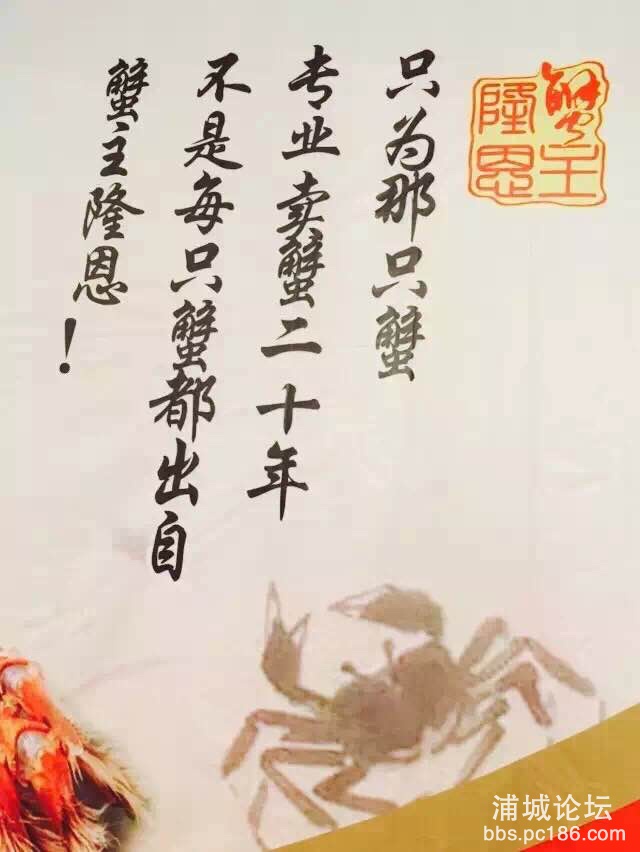 蟹主
隆恩
只为那只蟹
专业卖蟹二十年
不是每只蟹都出自
蟹主隆恩！
浦城论坛
bbs.pc186.com